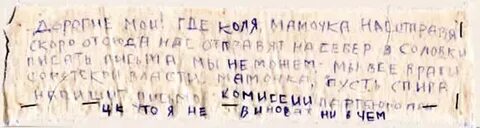 ДОРОГИЕ МОИ! ГДЕ КОЛЯ, МАМОЧКА НАС ОТПРАВЯ
СКОРО ОТСЮДА НАС ОТПРАВЯТ НА СЕВЕР В СОЛОВКИ
ПИСАТЬ ПИСЬМА, МЫ НЕ МОЖЕМ - МЫ ВСЕ ВРАГИ
СОВЕТСКОЙ ВЛАСТИ. МАМОЧКА, ПУСТЬ СПИРА
НАПИШИТ ПИСЬМО КОМИССИИ ПАРТ
ЦК ЧТО Я НЕ ВИНОВАТ НИ В ЧЕМ